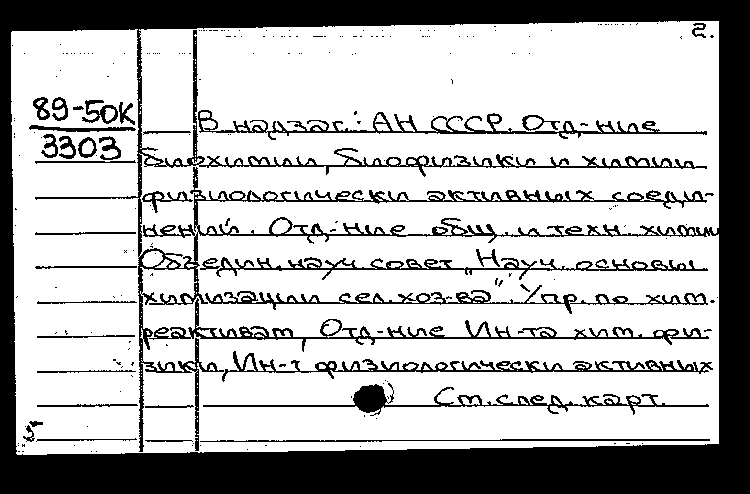 2.
89-50К
3303
В надзаг.: АН СССР. Отд-ние
биохимии, биофизики и химии
физиологически активных соеди-
нений. Отд-ние общ. и техн. химии
Объедин. науч. совет „Науч. основы
химизации сел. хоз-ва". Упр. по хим.
реактивам, Отд-ние Ин-та хим. фи-
зики, Ин-т физиологически активных
См. след. карт.